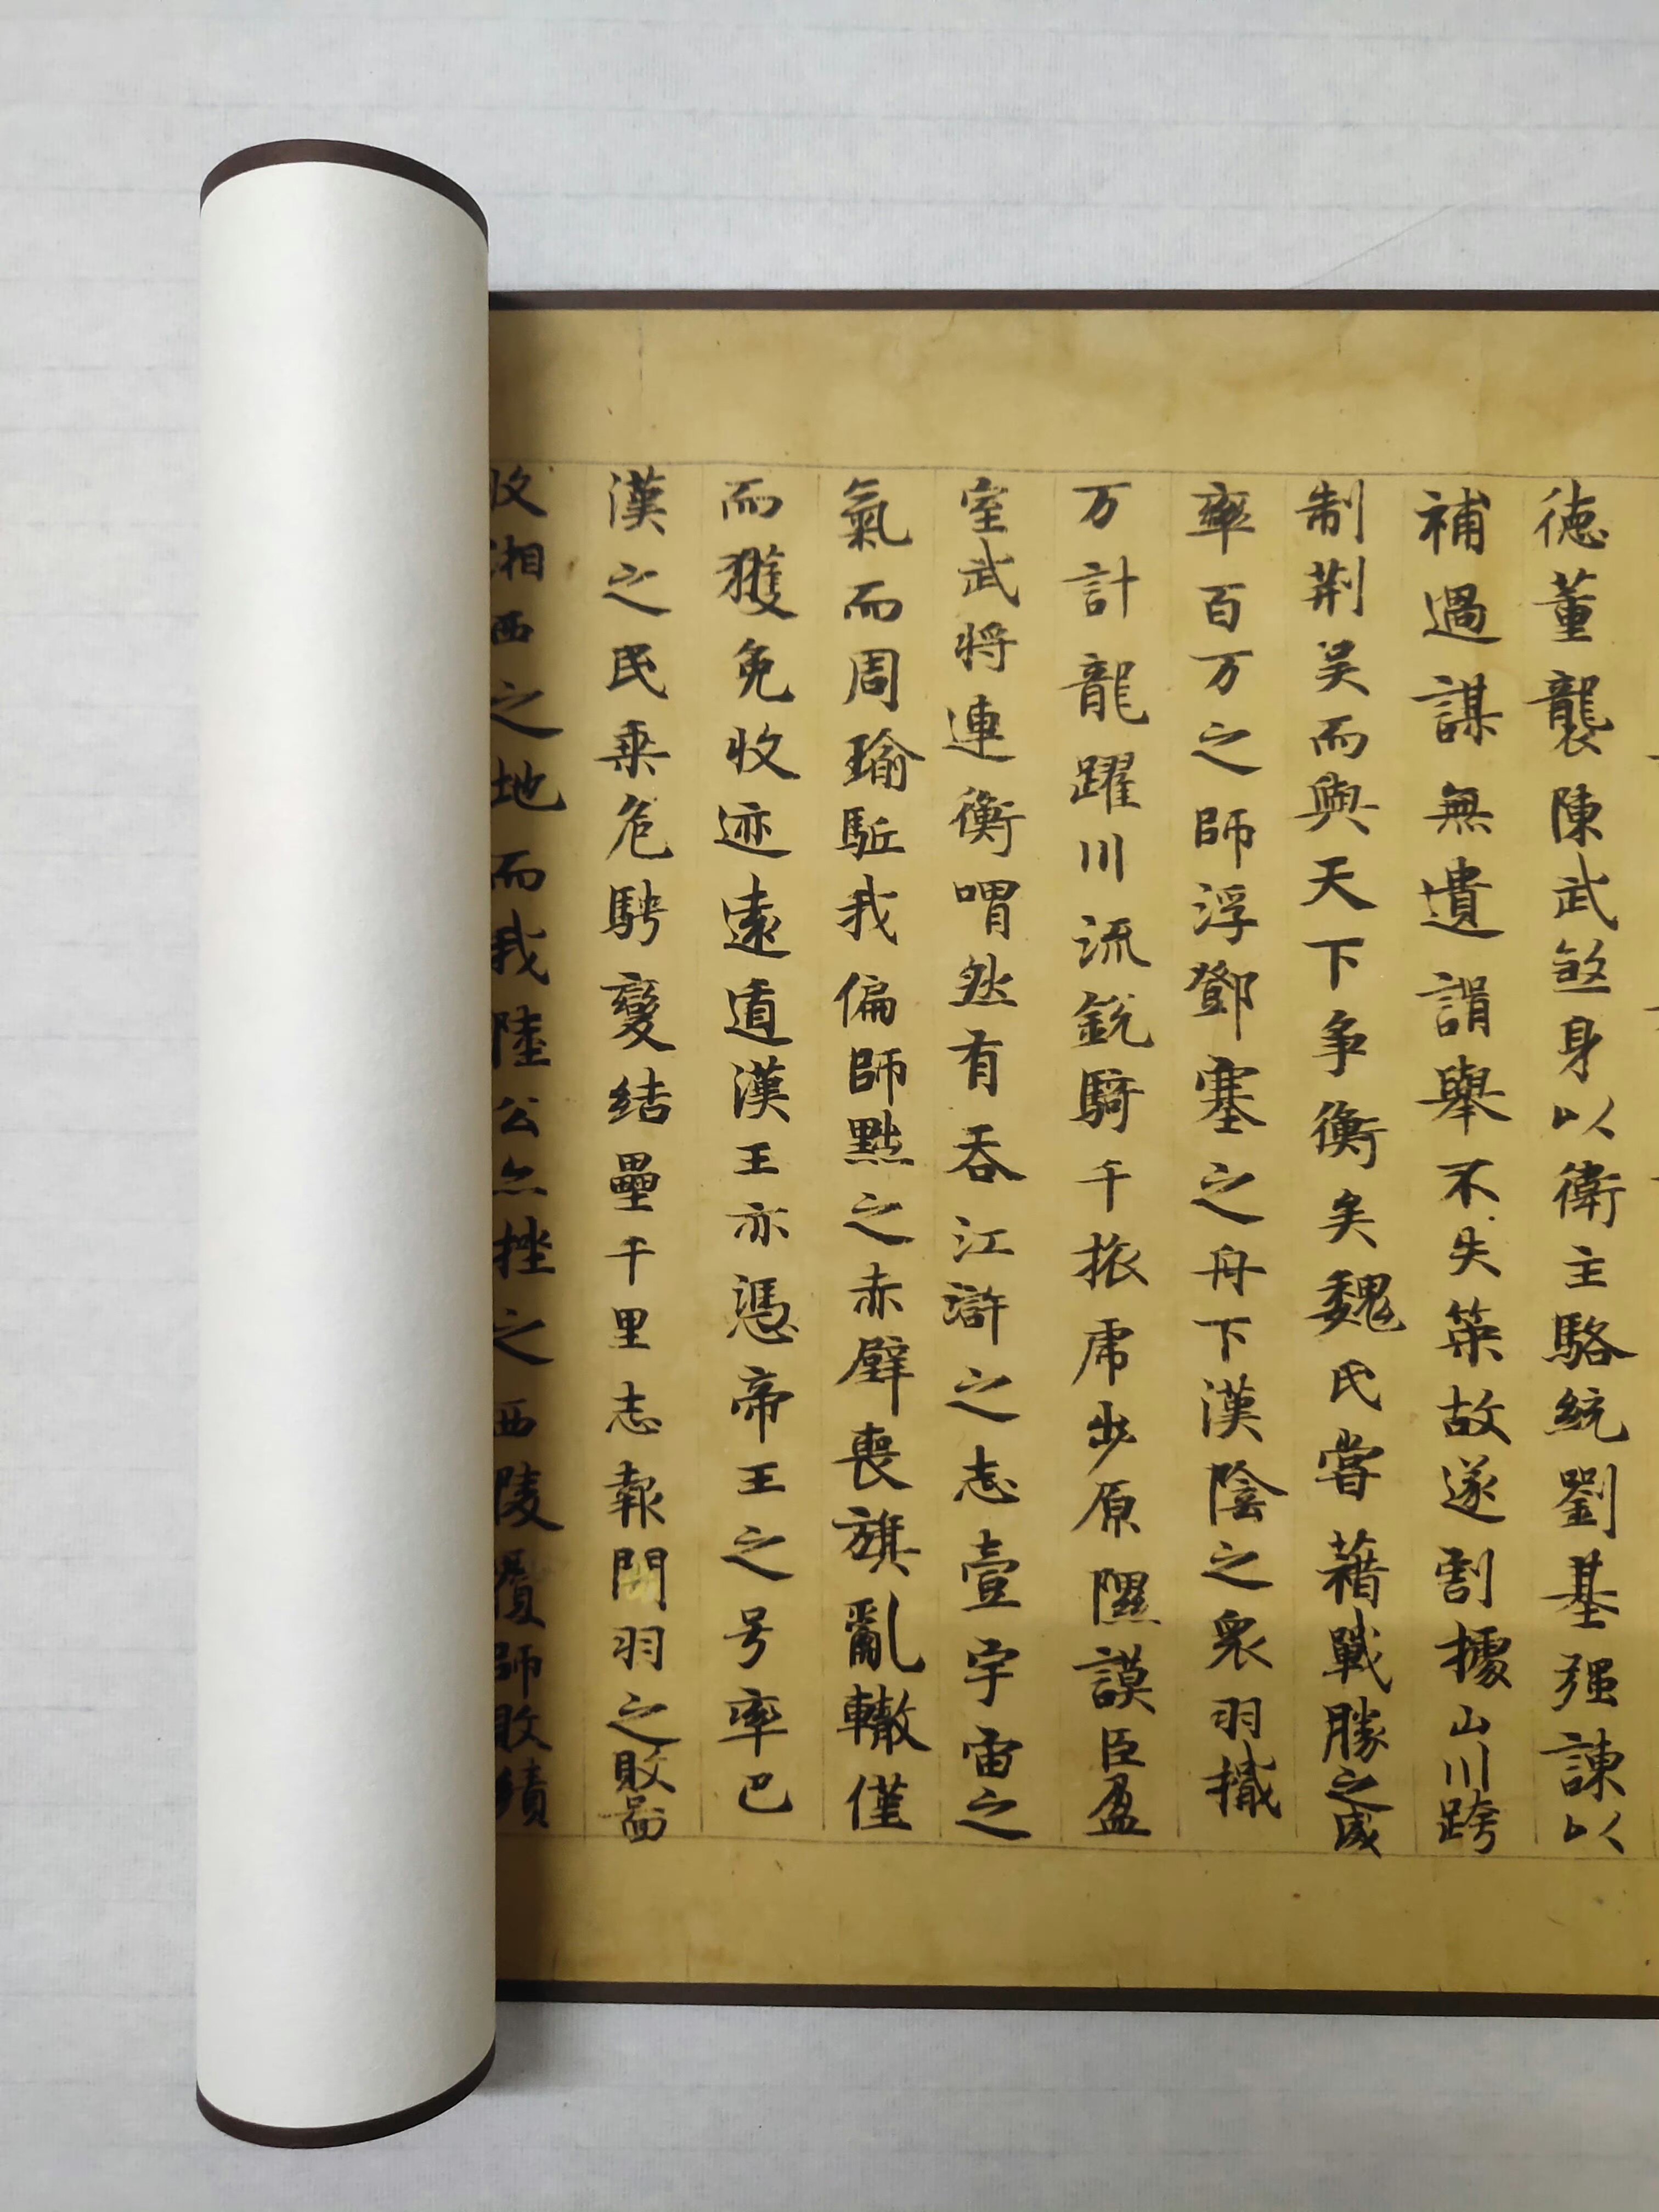 徳董襲陳武煞身以衛主駱統劉基强諌以
補過謀無遺諝舉不失䇿故遂割據山川跨
制荆吴而與天下争衡矣魏氏嘗藉戰勝之威
率百万之師浮鄧塞之舟下漢陰之衆羽擑
万計龍躍川流銳騎千旅虎步原隰謨臣盈
室武将連衡喟然有吞江滸之志壹宇宙之
氣而周瑜駈我偏師黜之赤壁喪旗亂轍僅
而獲免收迹遠遁漢王亦憑帝王之号率巴
漢之民乗危騁變结壘千里志報關羽之敗啚
收湘西之地而我陸公亦挫之西陵覆師敗績